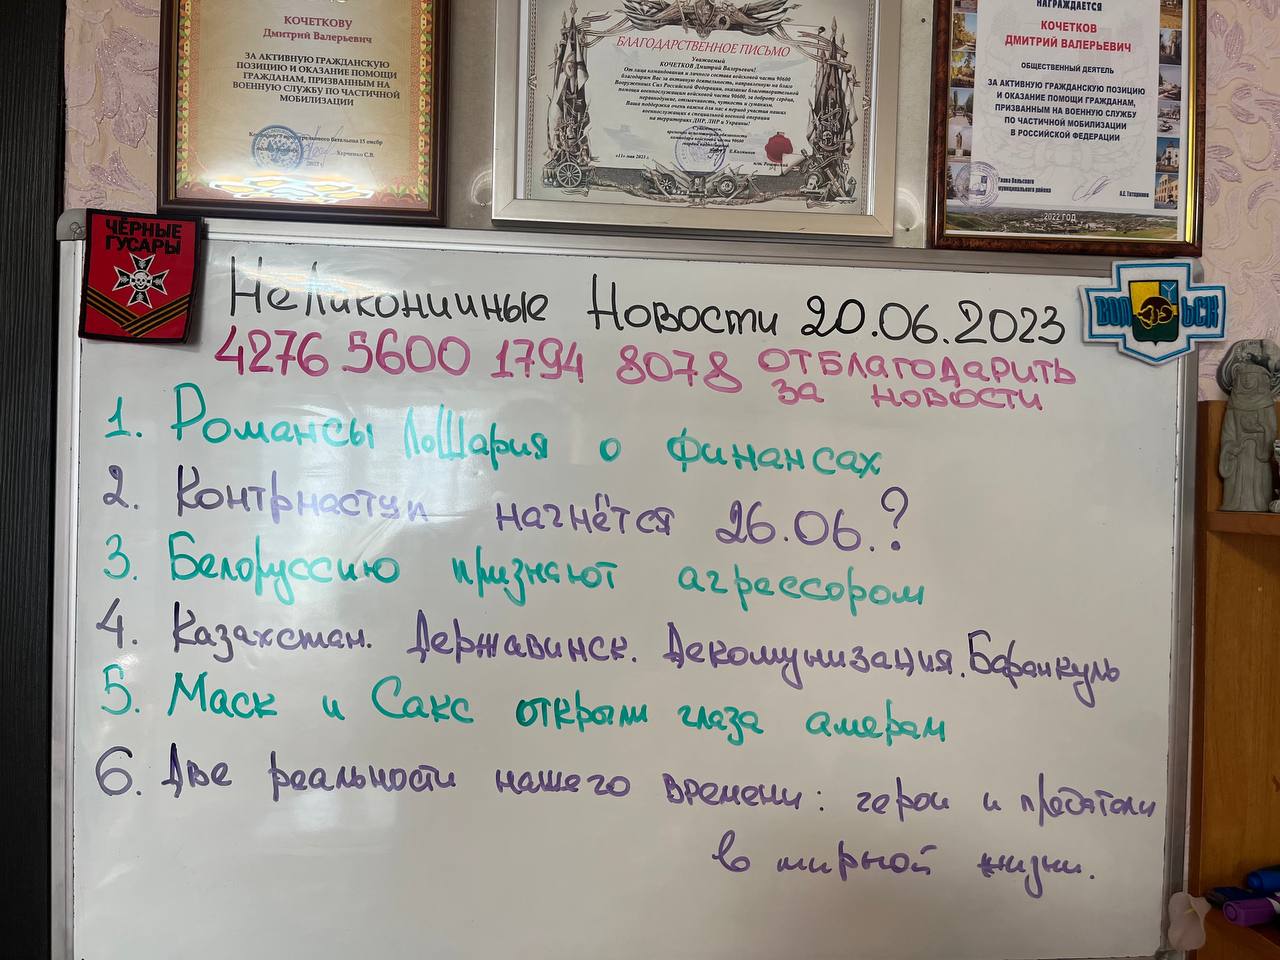 КОЧЕТКОВУ
Дмитрий Валерьевич
ЗА АКТИВНУЮ ГРАЖДАНСКУЮ
ПОЗИЦИЮ И ОКАЗАНИЕ ПОМОЩИ
ГРАЖДАНАМ, ПРИЗВАННЫМ НА
ВОЕННУЮ СЛУЖБУ ПО ЧАСТИЧНОЙ
МОБИЛИЗАЦИИ
Харченко С.В.
БЛАГОДАРСТВЕННОЕ ПИСЬМО
Уважаемый
КОЧЕТКОВ Дмитрий Валерьевич!
От лица командования и личного состава войсковой части 90600
на территориях ДНР, ЛНР и Украины!
НАГРАЖДАЕТСЯ
КОЧЕТКОВ
ДМИТРИЙ ВАЛЕРЬЕВИЧ
ОБЩЕСТВЕННЫЙ ДЕЯТЕЛЬ
ЗА АКТИВНУЮ ГРАЖДАНСКУЮ ПОЗИЦИЮ
И ОКАЗАНИЕ ПОМОЩИ ГРАЖДАНАМ,
ПРИЗВАННЫМ НА ВОЕННУЮ СЛУЖБУ
ПО ЧАСТИЧНОЙ МОБИЛИЗАЦИИ
В РОССИЙСКОЙ ФЕДЕРАЦИИ
Глава Вольского
муниципального района
2022 ГОД
ЧЁРНЫЕ
ГУСАРЫ
ВОЛЬСК
НеЛиконичные Новости 20.06.2023
4276 5600 1794 8078 ОТБЛАГОДАРИТЬ
ЗА НОВОСТИ
1. Романсы ЛоШария о финансах
2. Контрнаступ начнётся 26.06.?
3. Белоруссию признают агрессором
4. Казахстан. Державинск. Декомунизация. Баранкуль
5. Маск и Сакс открыли глаза амерам
6. Две реальности нашего времени: герои и предатели
в мирной жизни.